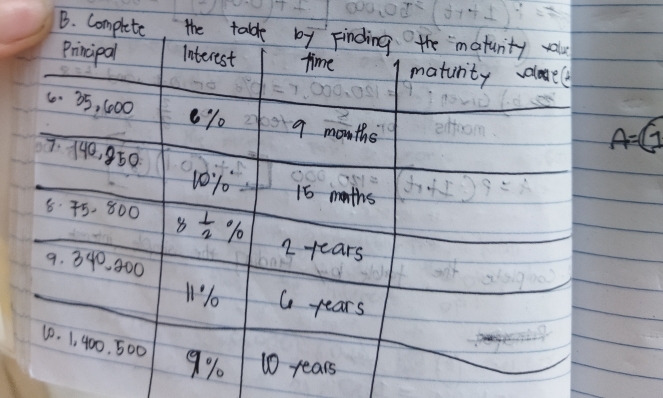 B. Complete the table by Finding the maturity value
Principal Interest time maturity value
6. 35,600 6% 9 months
7. 140,250 10% 15 months
8. 75.800 8 1/2 % 2 years
9. 340.200 11% 6 years
10. 1,400.500 9% 10 years
A=